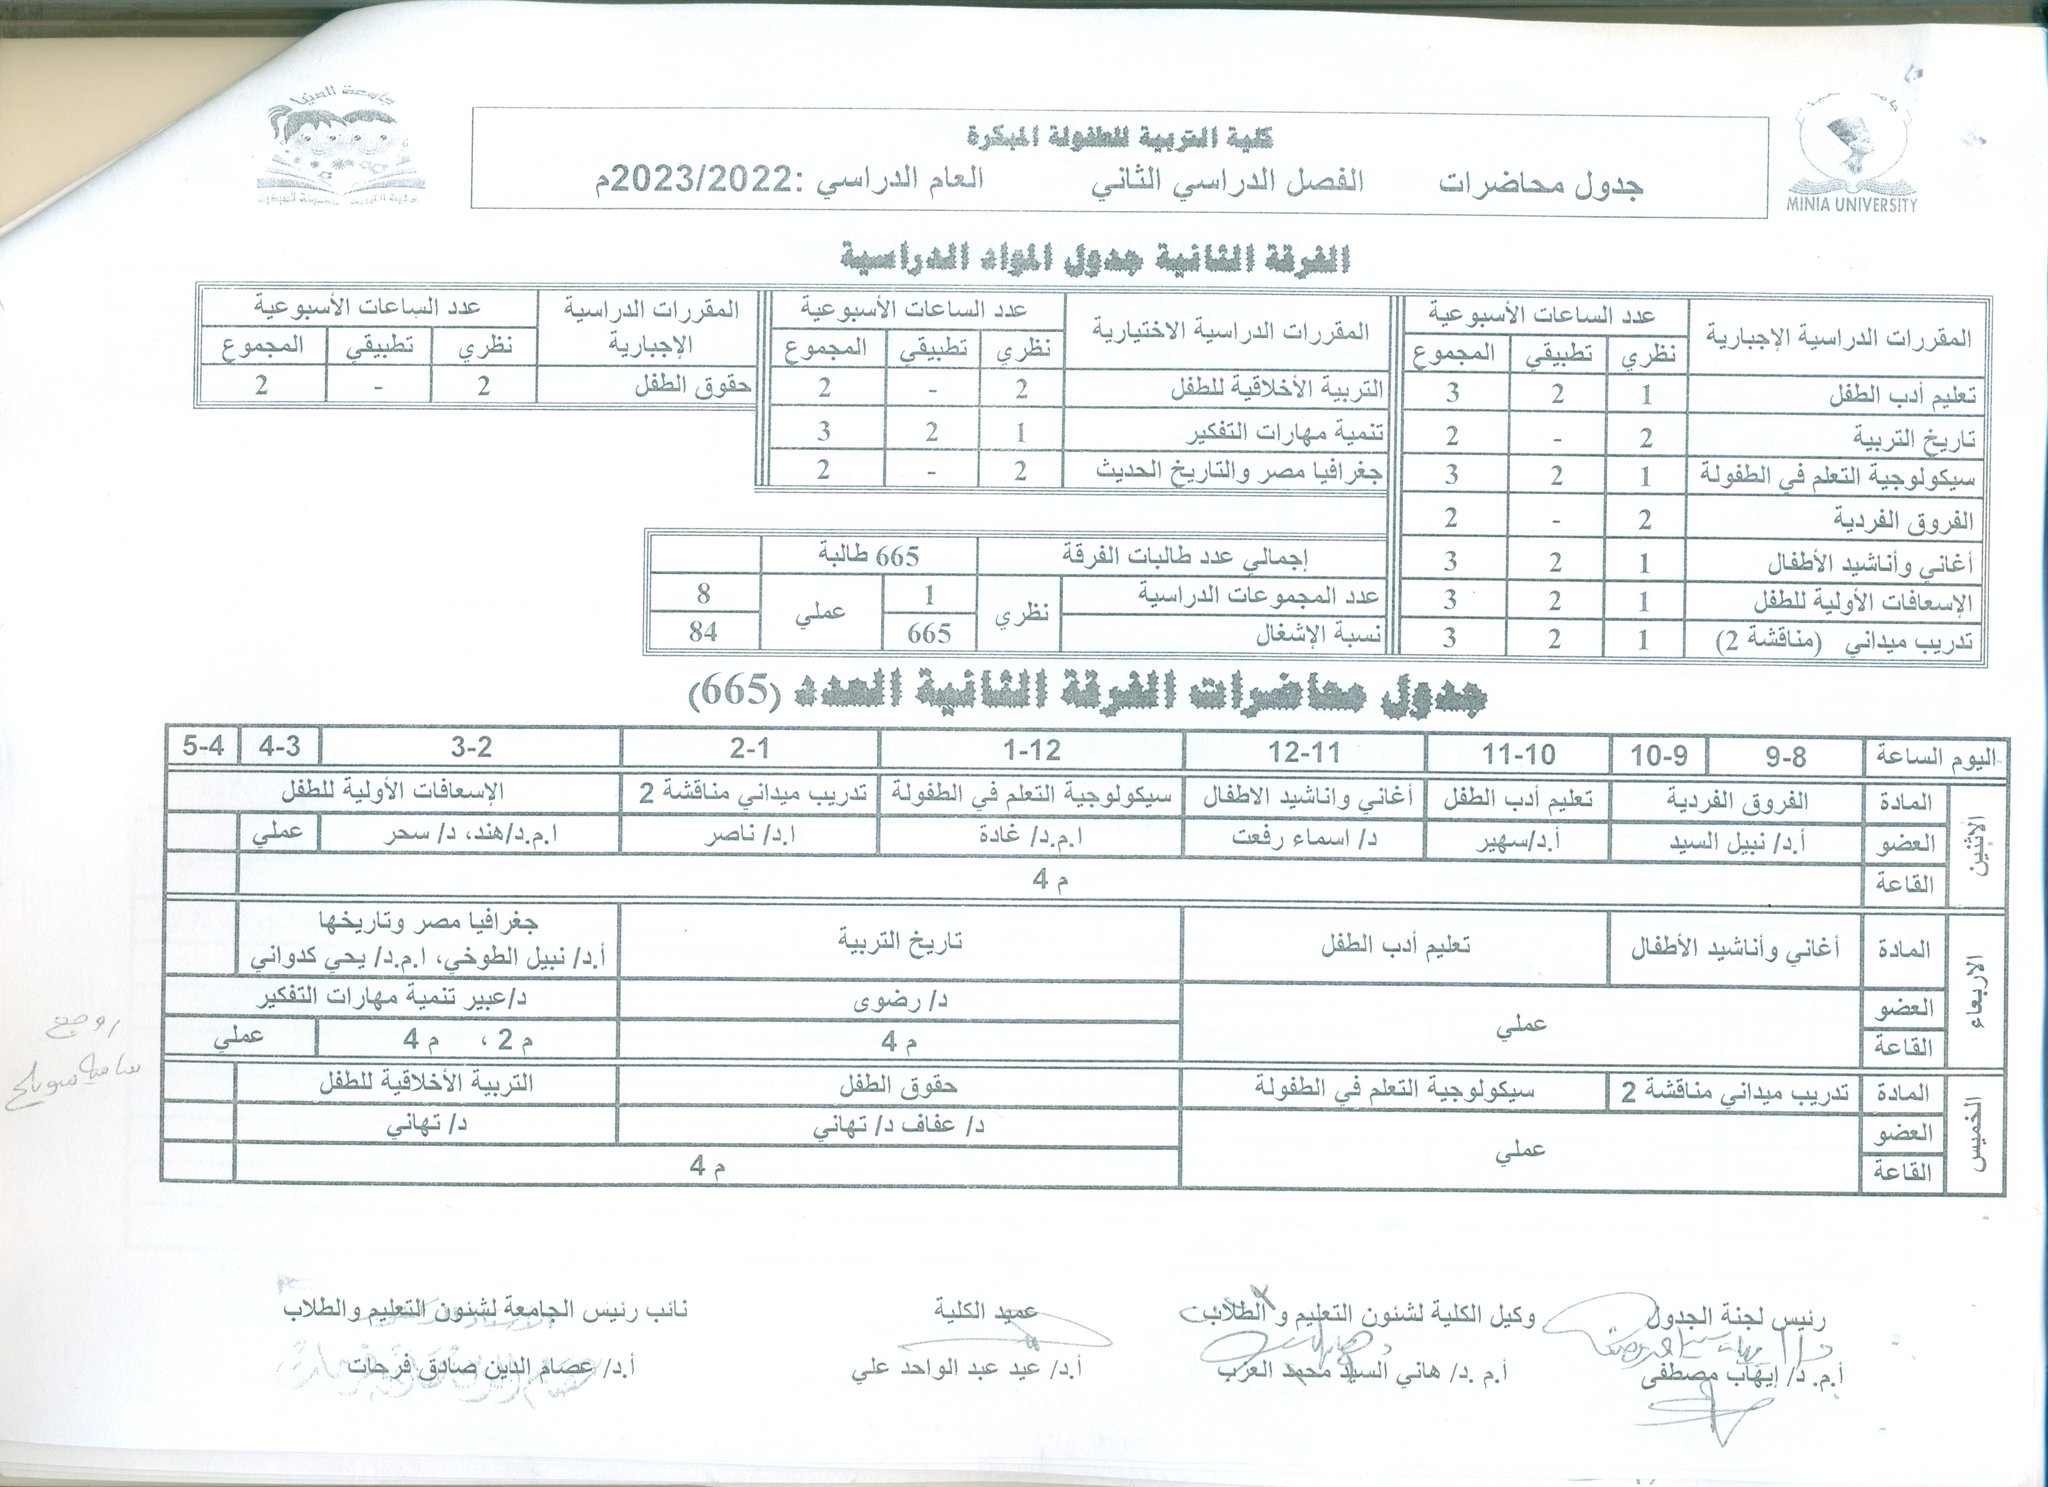 جامعة المنيا
MINIA UNIVERSITY
كلية التربية للطفولة المبكرة
جدول محاضرات الفصل الدراسي الثاني العام الدراسي :2023/2022م
الفرقة الثانية جدول المواد الدراسية
المقررات الدراسية الإجبارية عدد الساعات الأسبوعية
نظري تطبيقي المجموع
تعليم أدب الطفل 1 2 3
تاريخ التربية 2 - 2
سيكولوجية التعلم في الطفولة 1 2 3
الفروق الفردية 2 - 2
أغاني وأناشيد الأطفال 1 2 3
الإسعافات الأولية للطفل 1 2 3
تدريب ميداني (مناقشة 2) 1 2 3
المقررات الدراسية الاختيارية عدد الساعات الأسبوعية
نظري تطبيقي المجموع
التربية الأخلاقية للطفل 2 - 2
تنمية مهارات التفكير 1 2 3
جغرافيا مصر والتاريخ الحديث 2 - 2
المقررات الدراسية الإجبارية عدد الساعات الأسبوعية
نظري تطبيقي المجموع
حقوق الطفل 2 - 2
إجمالي عدد طالبات الفرقة 665 طالبة
عدد المجموعات الدراسية نظري 1 عملي 8
نسبة الإشغال 665 84
جدول محاضرات الفرقة الثانية العدد (665)
اليوم الساعة 9-8 10-9 11-10 12-11 1-12 2-1 3-2 4-3 5-4
الاثنين
المادة الفروق الفردية تعليم أدب الطفل أغاني واناشيد الاطفال سيكولوجية التعلم في الطفولة تدريب ميداني مناقشة 2 الإسعافات الأولية للطفل
العضو أ.د/ نبيل السيد أ.د/سهير د/ اسماء رفعت ا.م.د/ غادة ا.د/ ناصر ا.م.د/هند، د/ سحر عملي
القاعة م 4
الاربعاء
المادة أغاني وأناشيد الأطفال تعليم أدب الطفل تاريخ التربية جغرافيا مصر وتاريخها
أ.د/ نبيل الطوخي، ا.م.د/ يحي كدواني
العضو عملي د/ رضوى د/عبير تنمية مهارات التفكير
القاعة م 4 م 2 ، م 4 عملي
الخميس
المادة تدريب ميداني مناقشة 2 سيكولوجية التعلم في الطفولة حقوق الطفل التربية الأخلاقية للطفل
العضو عملي د/ عفاف د/ تهاني د/ تهاني
القاعة م 4
رئيس لجنة الجدول وكيل الكلية لشئون التعليم والطلاب عميد الكلية نائب رئيس الجامعة لشئون التعليم والطلاب
أ.م. د/ إيهاب مصطفى أ.م .د/ هاني السيد محمد العزب أ.د/ عيد عبد الواحد علي أ.د/ عصام الدين صادق فرحات